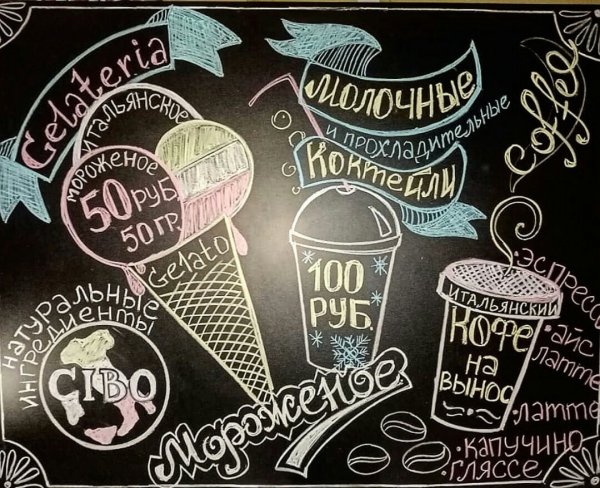 Gelateria
Итальянское
мороженое
50 руб.
50 гр.
Gelato
Натуральные
ингредиенты
CIBO
Молочные
и прохладительные
Коктейли
100
РУБ.
Мороженое
coffee
Итальянский
Кофе
на
вынос
·эспрессо
·айс
латте
·латте
·капучино
·гляссе